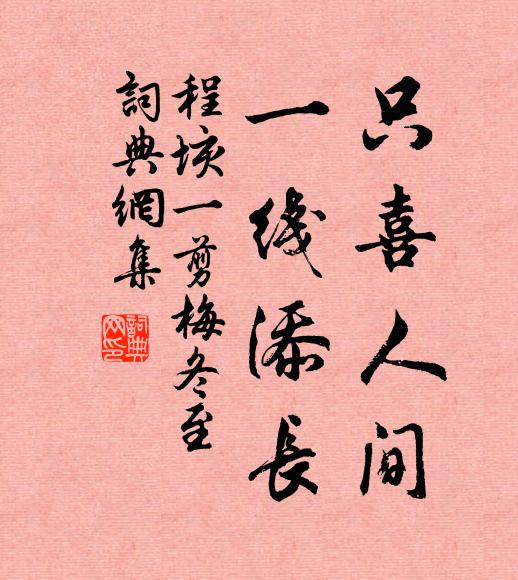 只喜人间
一线添長
程垓一剪梅冬至
詞典網集
詞典
网印